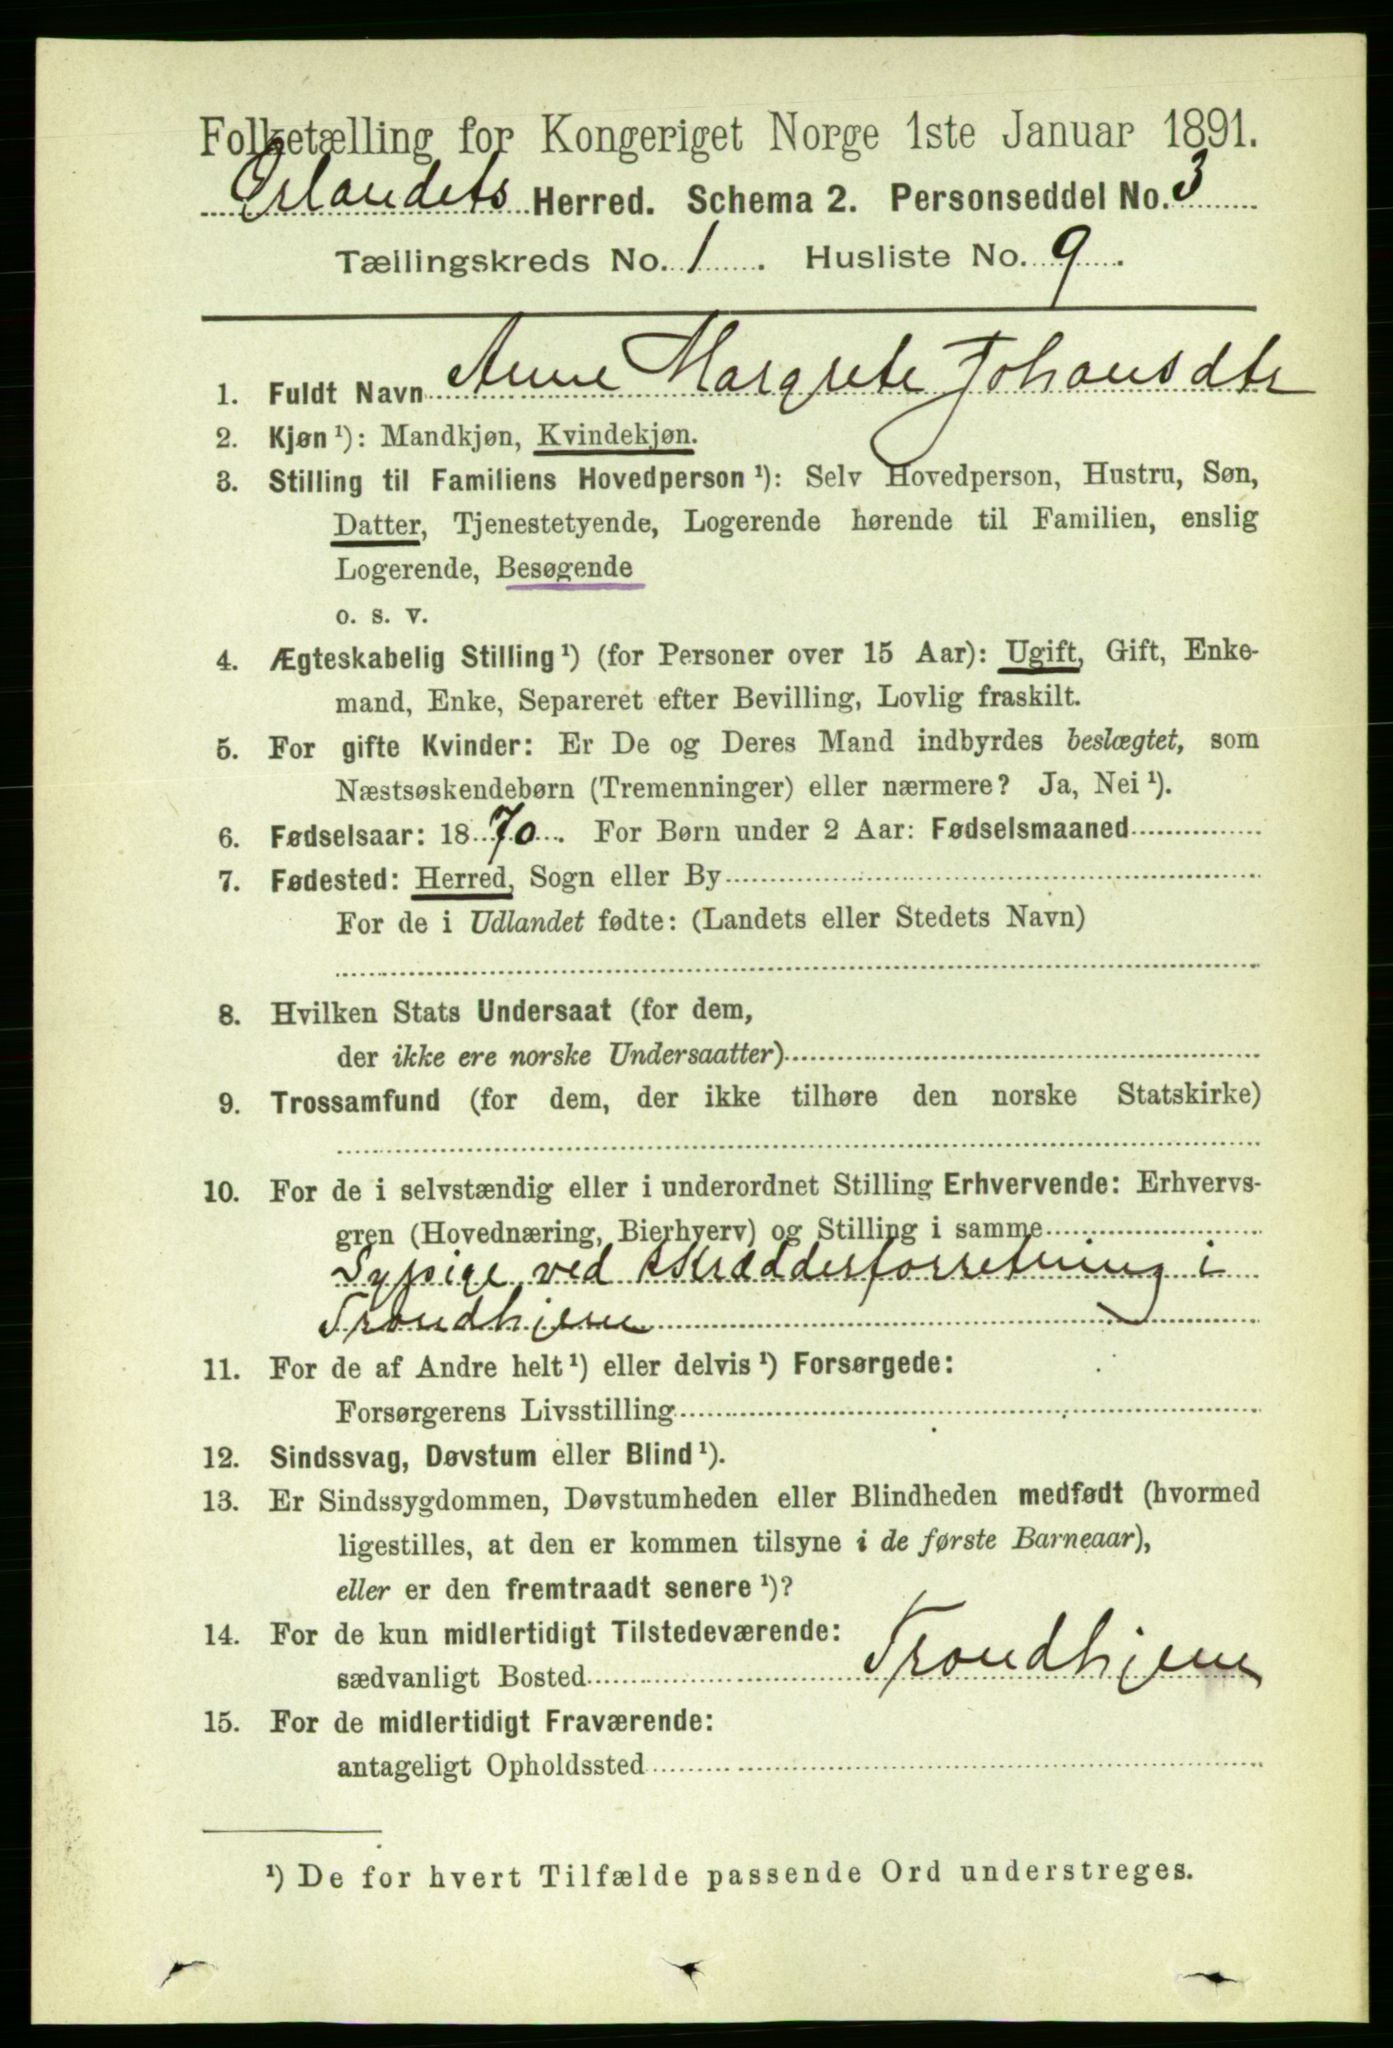 Folketælling for Kongeriget Norge 1ste Januar 1891.
Ørlandets Herred. Schema 2. Personseddel No. 3
Tællingskreds No. 1. Husliste No. 9.
1. Fuldt Navn Anne Margrete Johansdtr
2. Kjøn ¹): Mandkjøn, Kvindekjøn.
3. Stilling til Familiens Hovedperson ¹): Selv Hovedperson, Hustru, Søn,
Datter, Tjenestetyende, Logerende hørende til Familien, enslig
Logerende, Besøgende
o. s. v.
4. Ægteskabelig Stilling ¹) (for Personer over 15 Aar): Ugift, Gift, Enke-
mand, Enke, Separeret efter Bevilling, Lovlig fraskilt.
5. For gifte Kvinder: Er De og Deres Mand indbyrdes beslægtet, som
Næstsøskendebørn (Tremenninger) eller nærmere? Ja, Nei ¹).
6. Fødselsaar: 1870. For Børn under 2 Aar: Fødselsmaaned
7. Fødested: Herred, Sogn eller By
For de i Udlandet fødte: (Landets eller Stedets Navn)
8. Hvilken Stats Undersaat (for dem,
der ikke ere norske Undersaatter)
9. Trossamfund (for dem, der ikke tilhøre den norske Statskirke)
10. For de i selvstændig eller i underordnet Stilling Erhvervende: Erhvervs-
gren (Hovednæring, Bierhverv) og Stilling i samme
Sypige ved Skrædderforretning i
Trondhjem
11. For de af Andre helt ¹) eller delvis ¹) Forsørgede:
Forsørgerens Livsstilling
12. Sindssvag, Døvstum eller Blind ¹).
13. Er Sindssygdommen, Døvstumheden eller Blindheden medfødt (hvormed
ligestilles, at den er kommen tilsyne i de første Barneaar),
eller er den fremtraadt senere ¹)?
14. For de kun midlertidigt Tilstedeværende:
sædvanligt Bosted Trondhjem
15. For de midlertidigt Fraværende:
antageligt Opholdssted
¹) De for hvert Tilfælde passende Ord understreges.